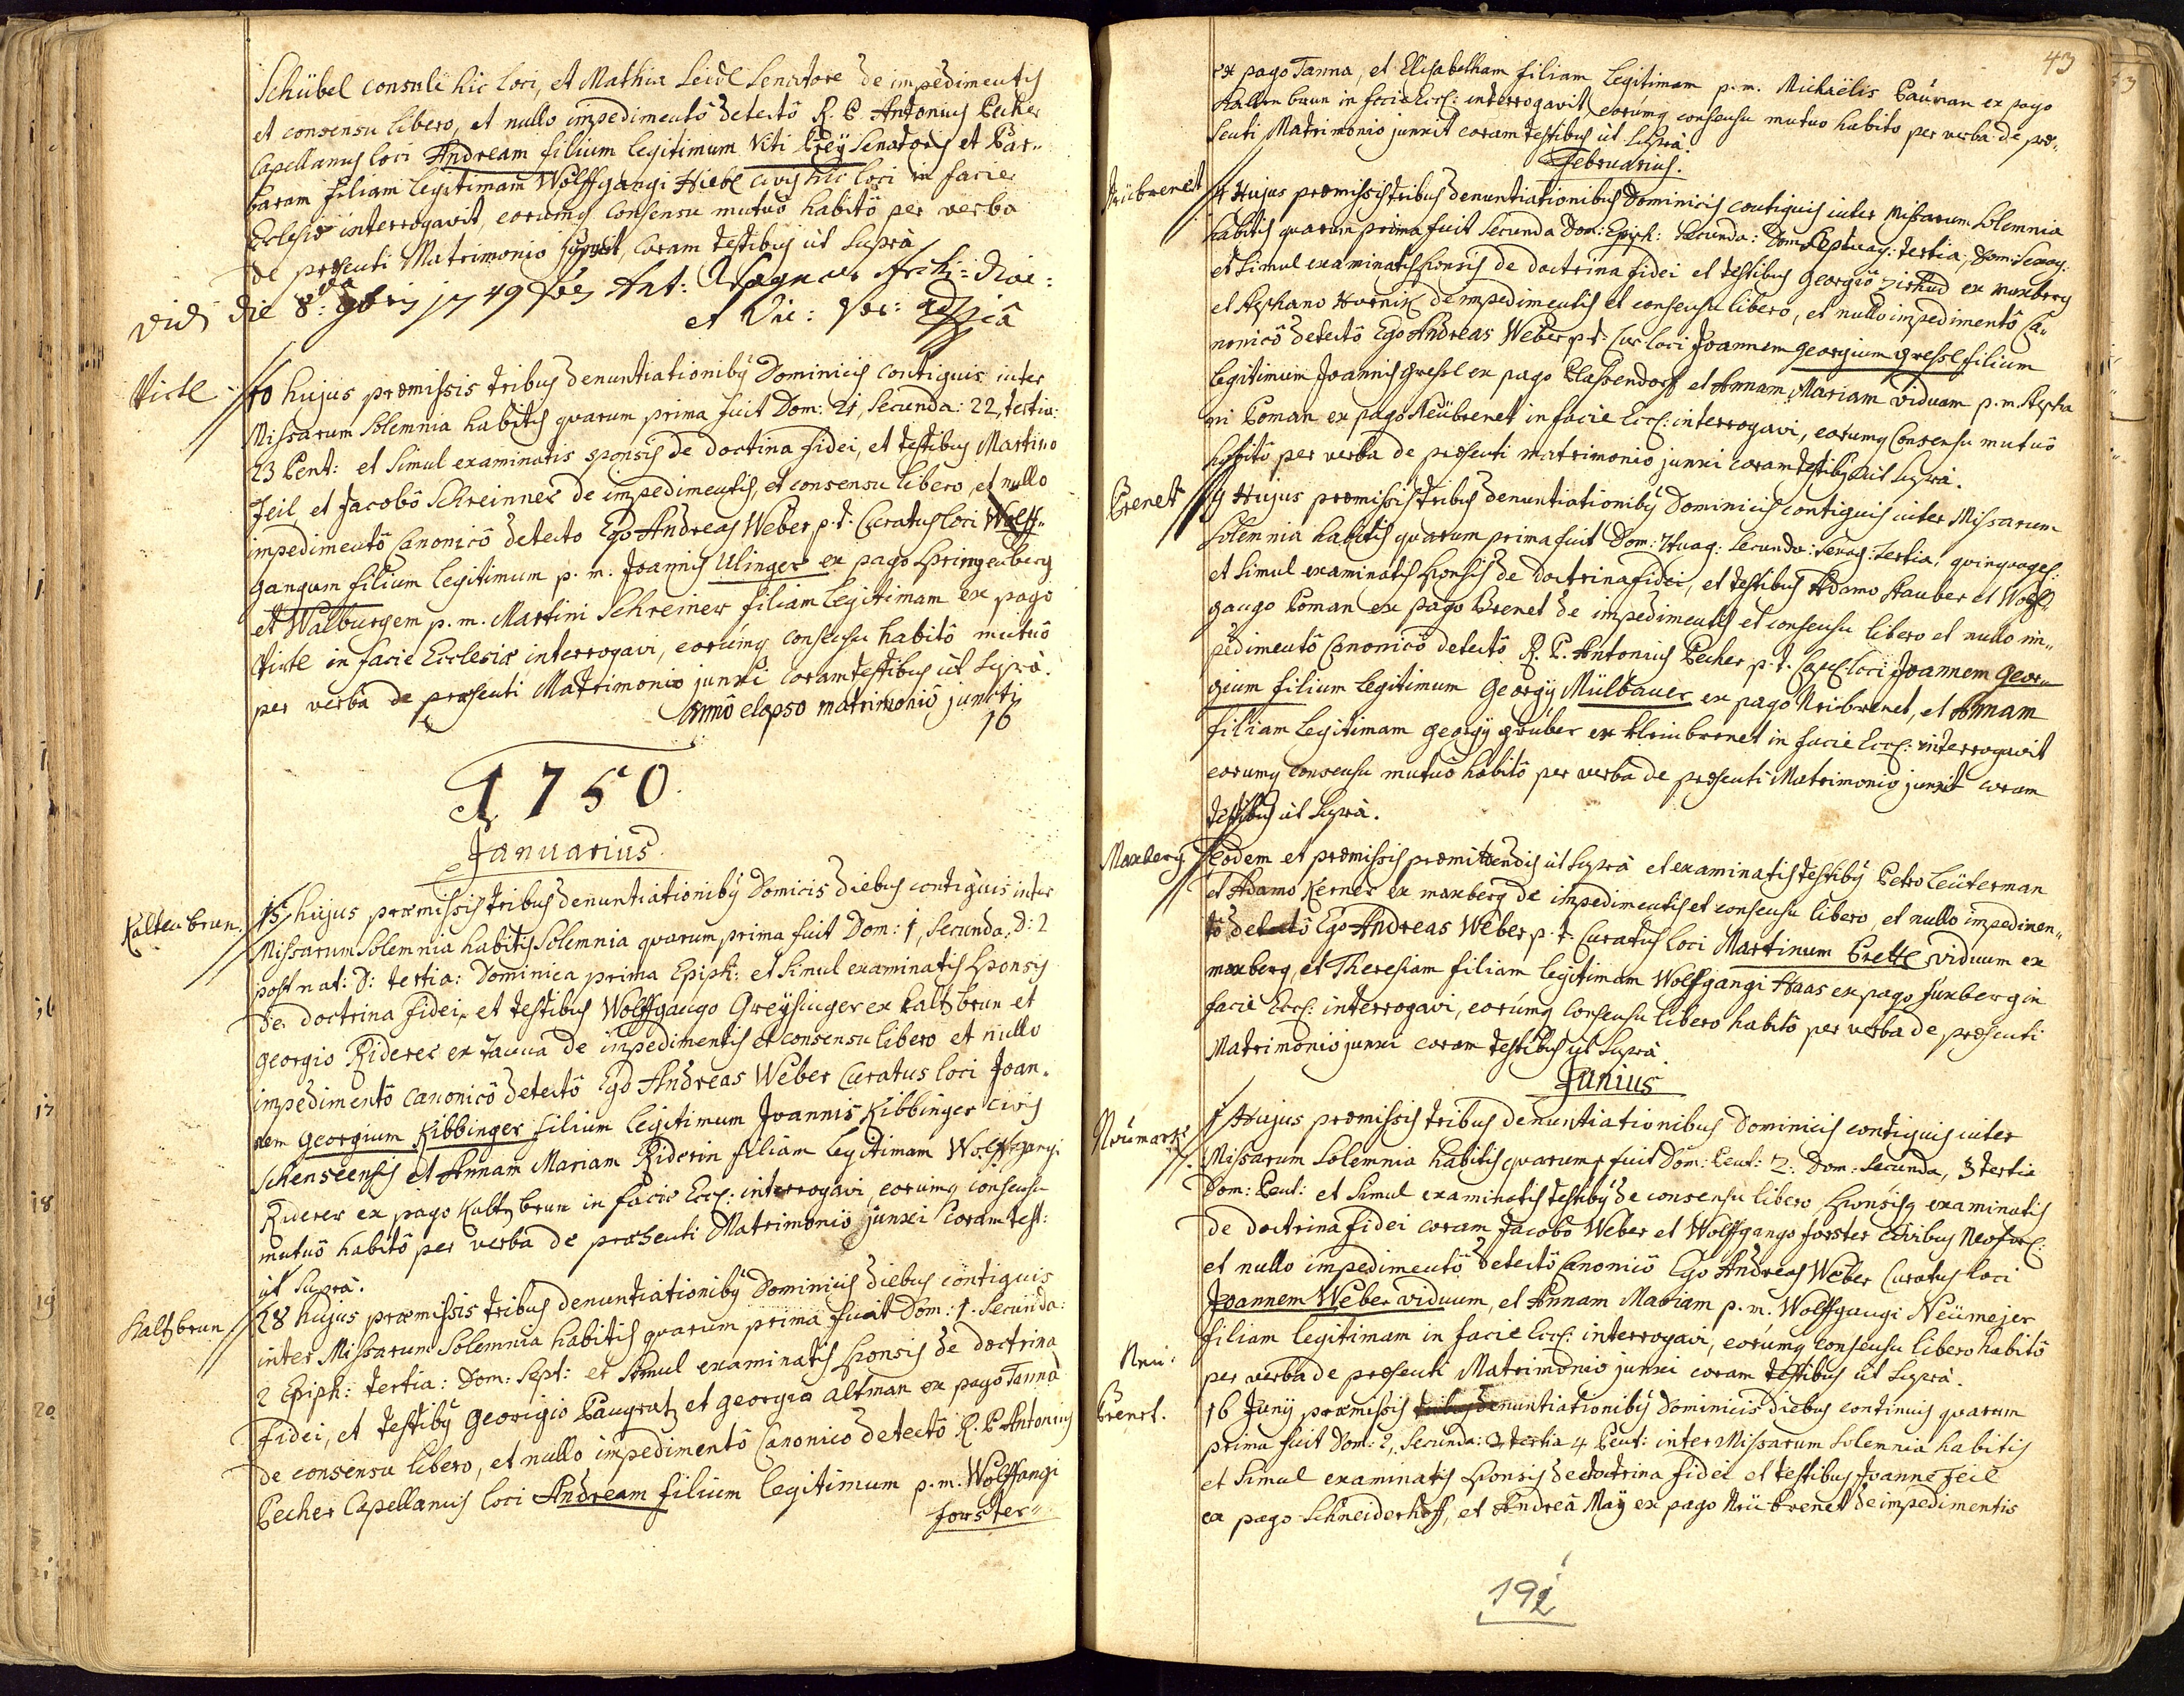 Schübel consule hic loci, et Mathia Leidl Senatore de impedimentis
et consensu libero, et nullo impedimentô detectô R. P. Antonius Pecher
Capellanus loci Andream filium legitimum Viti Preÿ Senatoris et Bar„
baram filiam legitimam Wolffgangi Hiebl civis hic loci in facie
Ecclesiæ interrogavit, eorumq consensu mutuô habitô per verba
de præsenti Matrimonio junxit, coram testibus ut supra
Vidi die 8va 9bris 1749 Ant: Wagner Archi: Diac:
et Vic: For:
Viertl
10 hujus præmissis tribus denuntiationibq Dominicis contiguis inter
Missarum Solemnia habitis quarum prima fuit Dom: 21, Secunda: 22, tertia:
23 Pent: et simul examinatis sponsis de doctina fidei, et testibus Martino
Zeil et Jacobô Schreinner de impedimentis, et consensu libero, et nullo
impedimentô Canonicô detecto Ego Andreas Weber, p. t. Curatus loci Wolff„
gangum filium legitimum p. m. Joannis Ulinger ex pago Springenberg
et Walburgem p. m. Martini Schreiner filiam legitimam ex pago
Viertl in facie Ecclesiæ interrogavi, eorúmq consensu habitô mutuô
per verba de præsenti Matrimonio junxi coram testibus ut supra.
Annô elapso matrimoniô juncti
16
1750.
Januarius.
Kaltenbrun.
15 hujus præmissis tribus denuntiationibq Domicis diebus contiguis inter
Missarum Solemnia habitis Solemnia quarum prima fuit Dom: 1, Secunda: D: 2
post nat: D: tertia: Dominica prima Epiph: et simul examinatis Sponsis
de doctrina fidei, et testibus Wolffgango Greÿsinger ex Kaltzbrun et
Georgio Riderer ex Tanna de impedimentis et consensu libero et nullo
impedimentô Canonicô detectô Ego Andreas Weber Curatus loci Joan„
nem Georgium Kibbinger filium legitimum Joannis Kibbinger civis
Schenseensis et Annam Mariam Riderin filiam legitimam Wolffgangi
Riderer ex pago Kaltzbrun in facie Eccl: interrogavi, eorumq consensu
mutuô habitô per verba de præsenti Matrimoniô junxi coram test:
ut Supra.
Kaltzbrun
28 hujus præmissis tribus denuntiationibq Dominicis diebus contiguis
inter Missarum Solemnia habitis quarum prima fuit Dom: 1. Secunda:
2 Epiph: tertia: Dom: Sept: et simul examinatis Sponsis de doctrina
fidei, et testibq Georgio Pangratz et Georgio Altman ex pago Tanna
de consensu libero, et nullo impedimentô Canonico detectô R. P. Antonius
Pecher Capellanus loci Andream filium legitimum p. m. Wolffangi
forster„
43
ex pago Tanna, et Elisabetham filiam legitimam p. m. Michaëlis Pauman ex pago
Kaltenbrun in facie Eccl: interrogavit, eorúmq consensu mutuo habito per verba de præ„
senti Matrimonio junxit coram testibus ut supra.
Februarius.
Neübrenet
4 Hujus præmissis tribus denuntiationibus Dominicis contiguis inter Missarum Solemnia
habitis quarum prima fuit Secunda Dom: Epiph: Secunda: Dom: Septuag: tertia, Dom: Sexag:
et simul examinatis Sponsis de doctrina fidei et testibus Georgio Zirkud ex maxberg
et Stephano Hornik de impedimentis et consensu libero, et nullo impedimentô Ca„
nonicô detectô Ego Andreas Weber p. t. Cur loci Joannem Georgium Gressl filium
legitimum Joannis Gressl ex pago Plassendorf et Annam Mariam viduam p. m. Stepha
ni Poman ex pago Neübrenet in facie Eccl: interrogavi, eorumq consensu mutuô
habitô per verba de præsenti matrimonio junxi coram testibq ut supra.
Brenet
9 Hujus præmissis tribus denuntiationibq Dominicis contiguis inter Missarum
Solemnia habitis quarum prima fuit Dom: 7tuag: Secunda: Sexag: Tertia, quinquages:
et simul examinatis Sponsis de doctrina fidei, et testibus Adamo Stauber et Wolf„
gango Poman ex pago Brenet de impedimentis et consensu libero et nullo im„
pedimentô Canonicô detectô R. P. Antonius Pecher p. t. Capl: loci Joannem Geor„
gium filium legitimum Georgÿ Mülbauer ex pago Neübrenet, et Annam
filiam legitimam Georgÿ Gruber ex Kleinbrenet in facie Eccl: interrogavit
eorumq consensu mutuô habitô per verba de præsenti Matrimonio junxit coram
testibus ut supra.
Maxberg
Eodem et præmissis præmittendis ut supra et examinatis testibq Petro Leüterman
et Adamo Kerner ex maxberg de impedimentis et consensu libero, et nullo impedimen„
tô detectô Ego Andreas Weber p. t. Curatus loci Martinum Brettl viduum ex
maxberg, et Theresiam filiam legitimam Wolffgangi Haas ex pago fuxberg in
facie Eccl: interrogavi, eorúmq consensu libero habitô per verba de præsenti
Matrimonio junxi coram testibus ut supra.
Junius
Neümarkt
1 Hujus præmissis tribus denuntiationibus Dominicis contiguis inter
Missarum Solemnia habitis quarum fuit Dom: Pent: 2: Dom: Secunda, 3 tertia
Dom: Pent: et simul examinatis testibq de consensu libero, Sponsisq examinatis
de doctrina fidei coram Jacobo Weber et Wolffgango forster civibus Neoforl:
et nullo impedimentô detectô Canonicô Ego Andreas Weber Curatus loci
Joannem Weber viduum, et Annam Mariam p. m. Wolffgangi Neümejer
filiam legitimam in facie Eccl: interrogavi, eorúmq consensu libero habitô
per verba de præsenti Matrimonio junxi coram testibus ut supra.
Neü:
Brenet.
16 Junÿ præmissis tribus denuntiationibq Dominicis diebus continuis quarum
prima fuit Dom: 2, Secunda: 3 tertia 4 Pent: inter Missarum Solemnia habitis
et simul examinatis Sponsis de doctrina fidei et testibus Joanne Zeil
ex pago Schneiderhoff, et Andreâ Maÿ ex pago Neübrenet de impedimentis
192